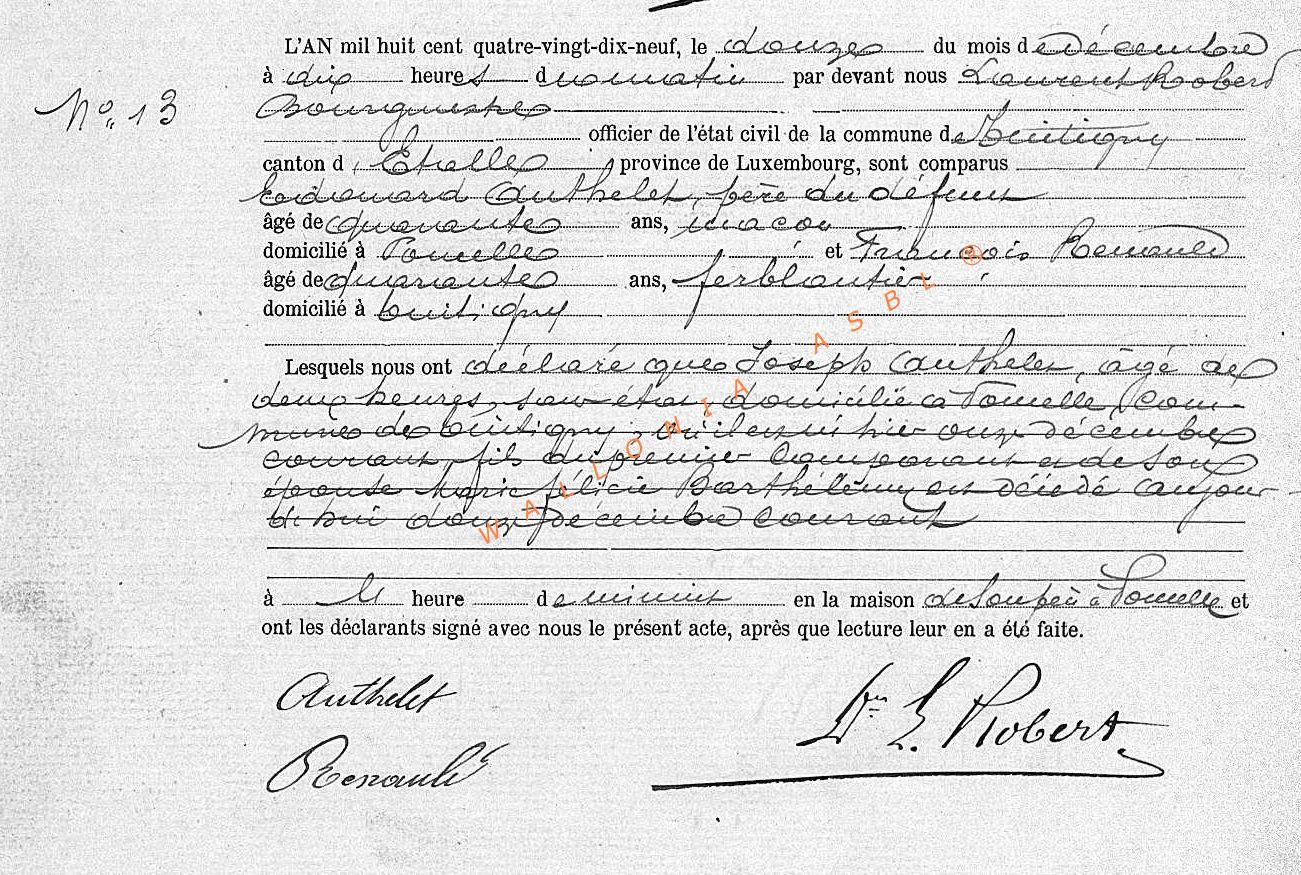 L'AN mil huit cent quatre-vingt-dix-neuf, le douze du mois de décembre
à dix heures du matin par devant nous Laurent Robert
N° 13
Bourgmestre
officier de l'état civil de la commune de Tintigny
canton d'Etalle, province de Luxembourg, sont comparus
Edouard Authelet, père du défunt
âgé de quarante ans, maçon
domicilié à Poncelle et François Renauld
âgé de quarante ans, ferblantier
domicilié à Tintigny
Lesquels nous ont déclaré que Joseph Authelet, âgé de
deux heures, sans état, domicilié à Poncelle, Com-
mune de Tintigny, où il est né hier onze décembre
courant, fils du premier Comparant et de son
épouse Marie Félicie Barthélemy est décédé aujour-
d'hui douze décembre courant
à heure de minuit en la maison de son père à Poncelle et
ont les déclarants signé avec nous le présent acte, après que lecture leur en a été faite.
Authelet
Dr L. Robert
Renauld
WALLONIA ASBL ®